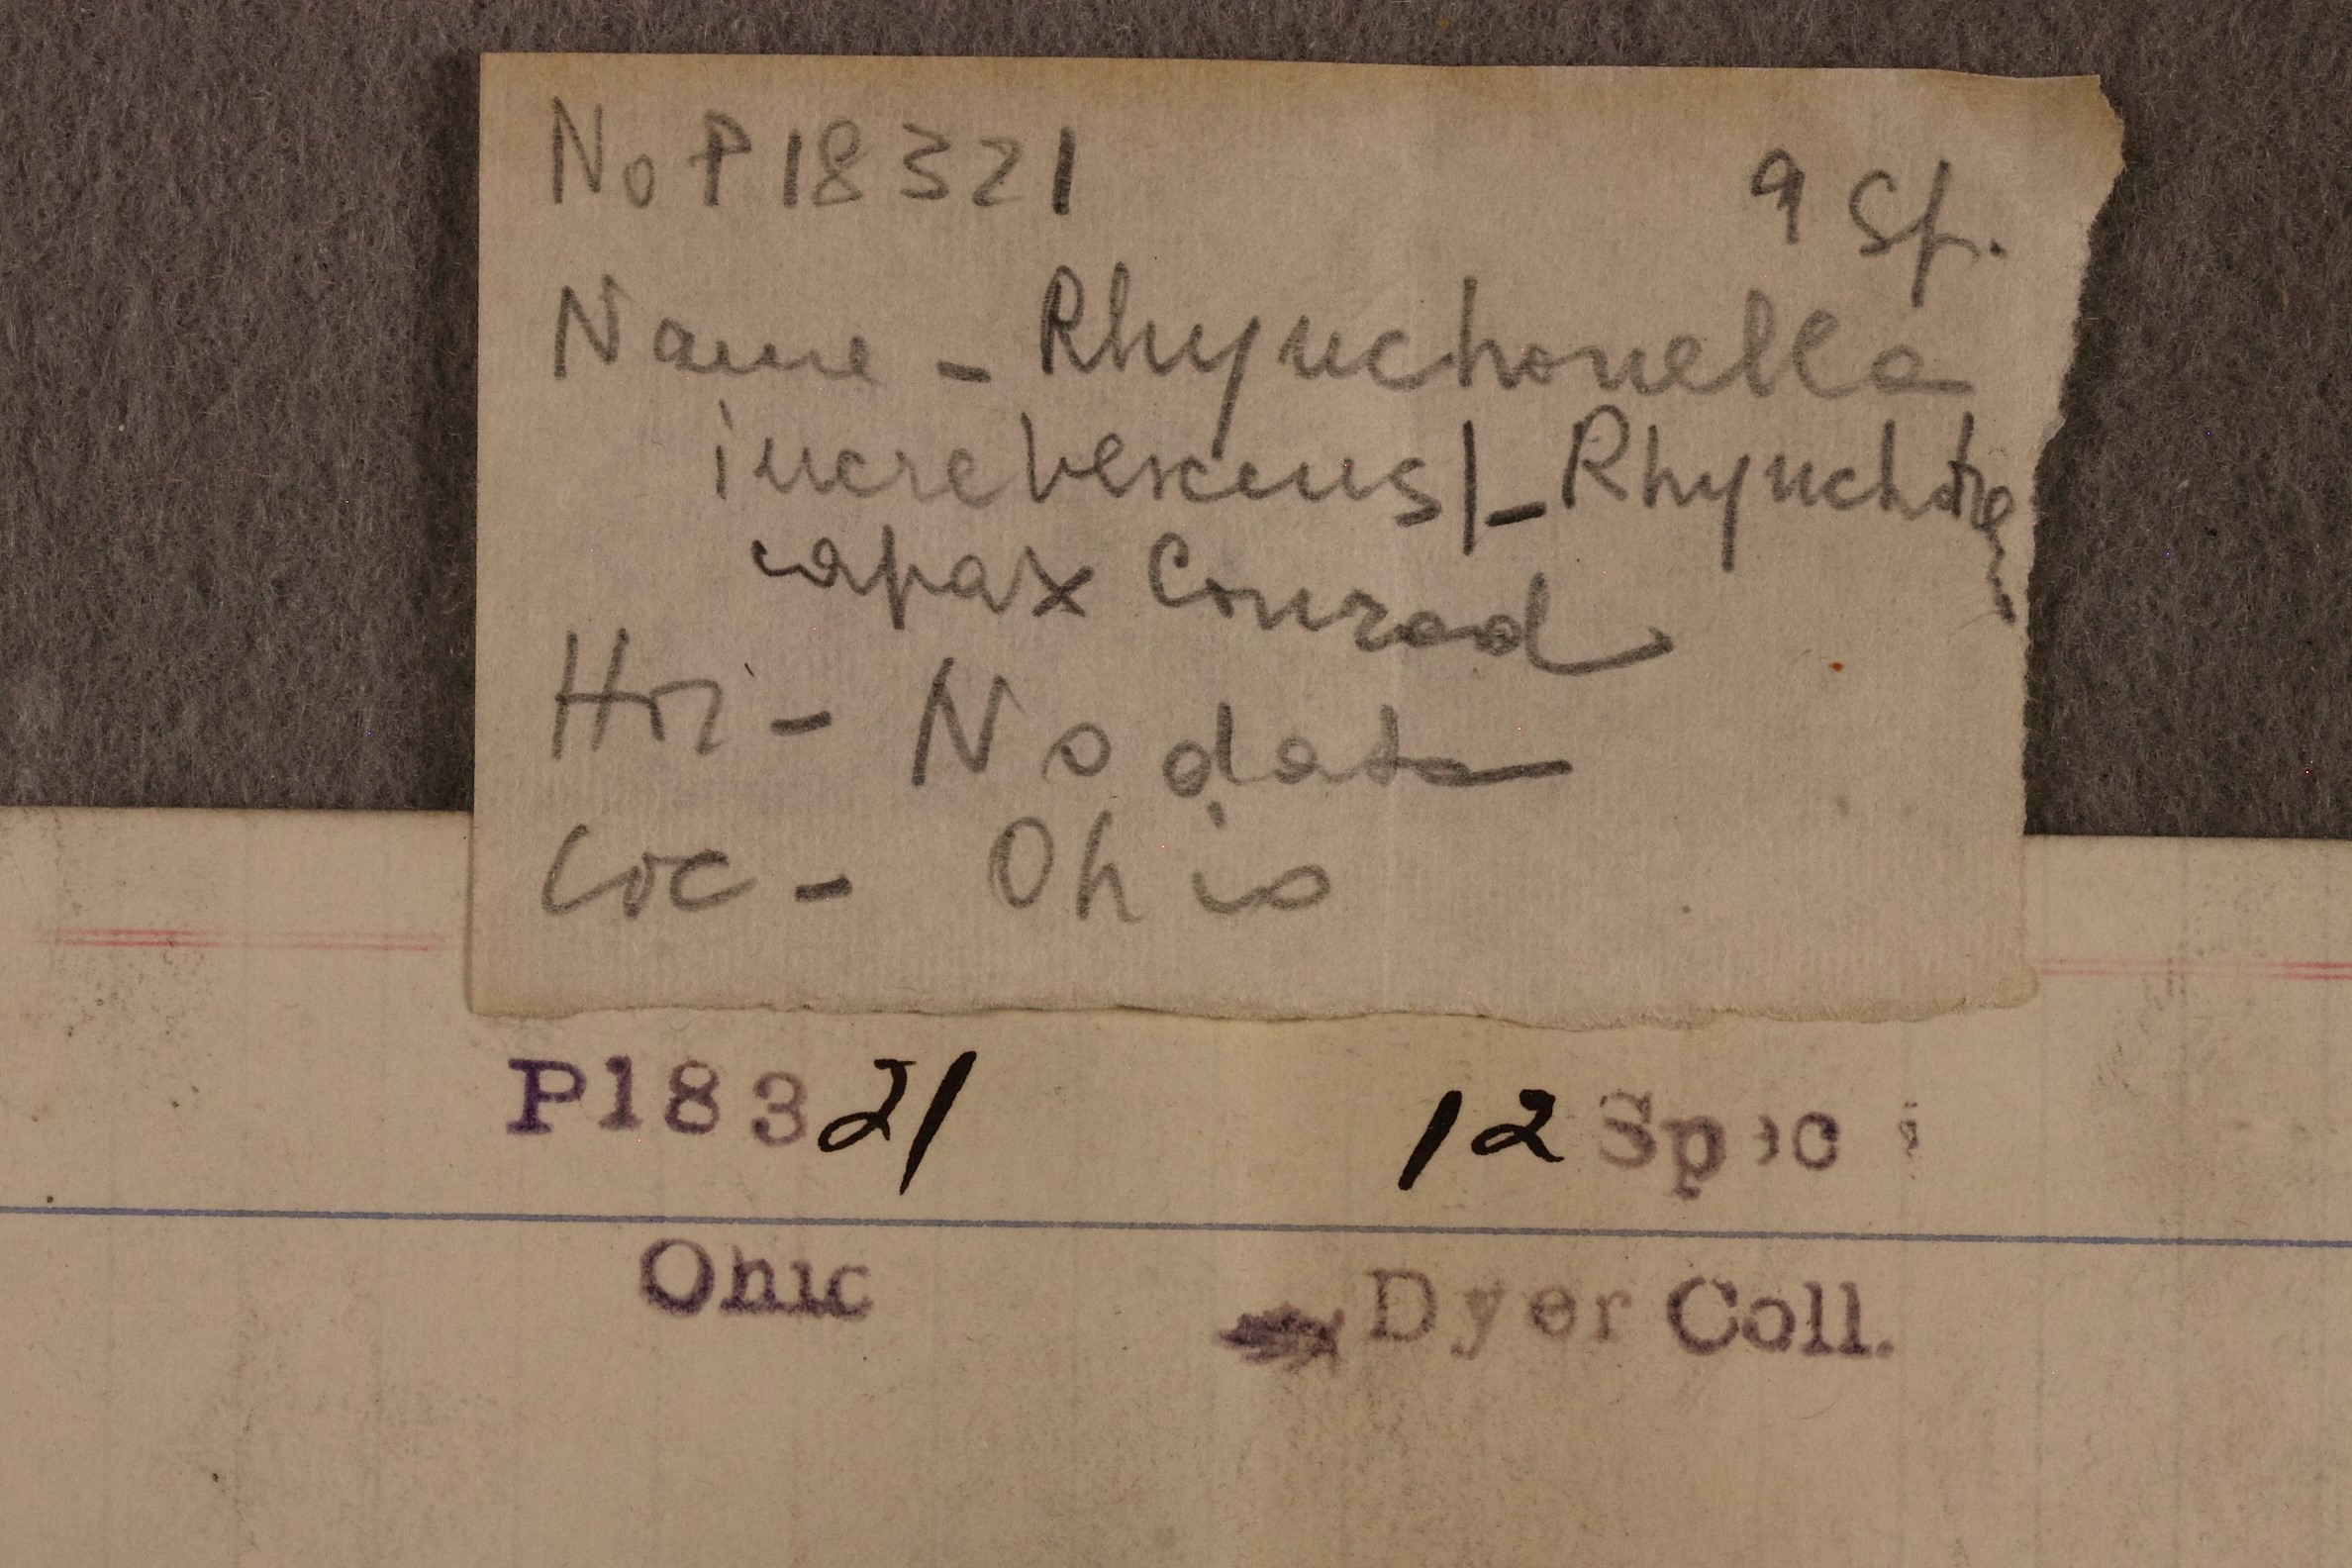 No P18321 9 Sp.
Name - Rhynchonella
increbescens/- Rhynchotrema
capax Conrad
Hor - No data
Loc - Ohio
P18321 12 Spec
Ohio
Dyer Coll.